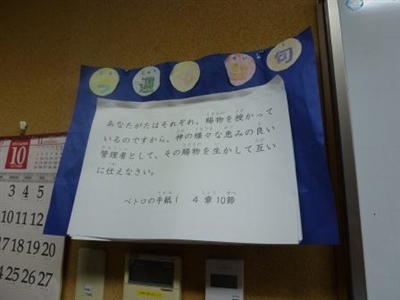 今週の聖句
あなたがたはそれぞれ、賜物を授かって
いるのですから、神の様々な恵みの良い
管理者として、その賜物を生かして互い
に仕えなさい。
ペトロの手紙1 4章10節
10
3 4 5
10 11 12 13
17 18 19 20
25 26 27